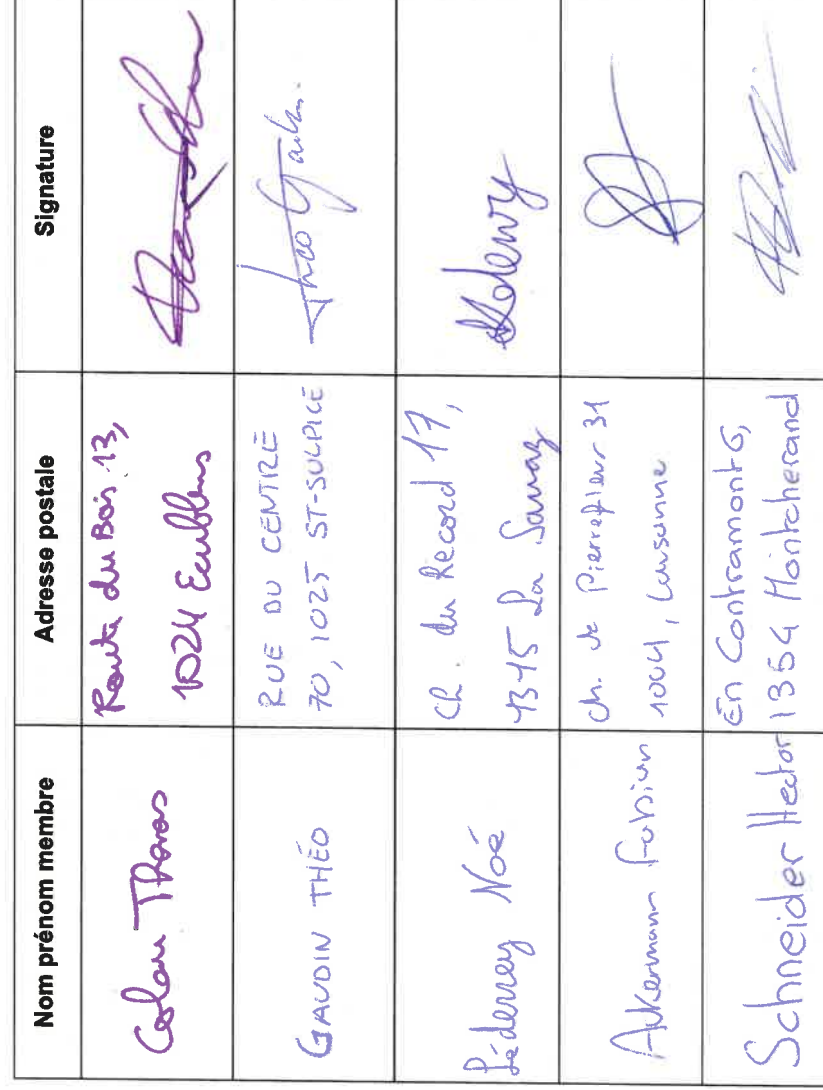 Nom prénom membre Adresse postale Signature
Thomas Route du Bois 13,
1024 Ecublens
GAUDIN THÉO RUE DU CENTRE
70, 1025 ST-SULPICE
Noé Ch. du Record 17,
La
Ackermann Fabian Ch. de Pierrefleur 31
1004, Lausanne
Schneider Hector En Contramont 6,
1354 Montcherand